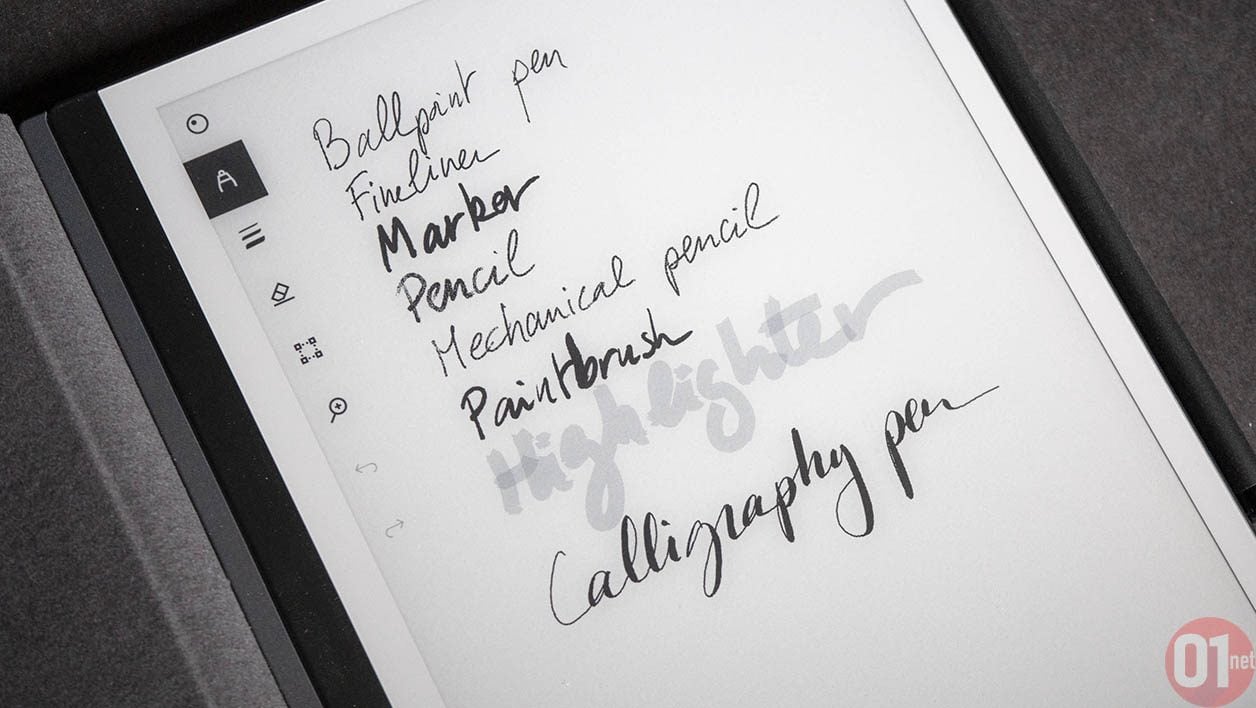 Ballpoint pen
Fineliner
Marker
Pencil
Mechanical pencil
Paintbrush
Highlighter
Calligraphy pen
01net